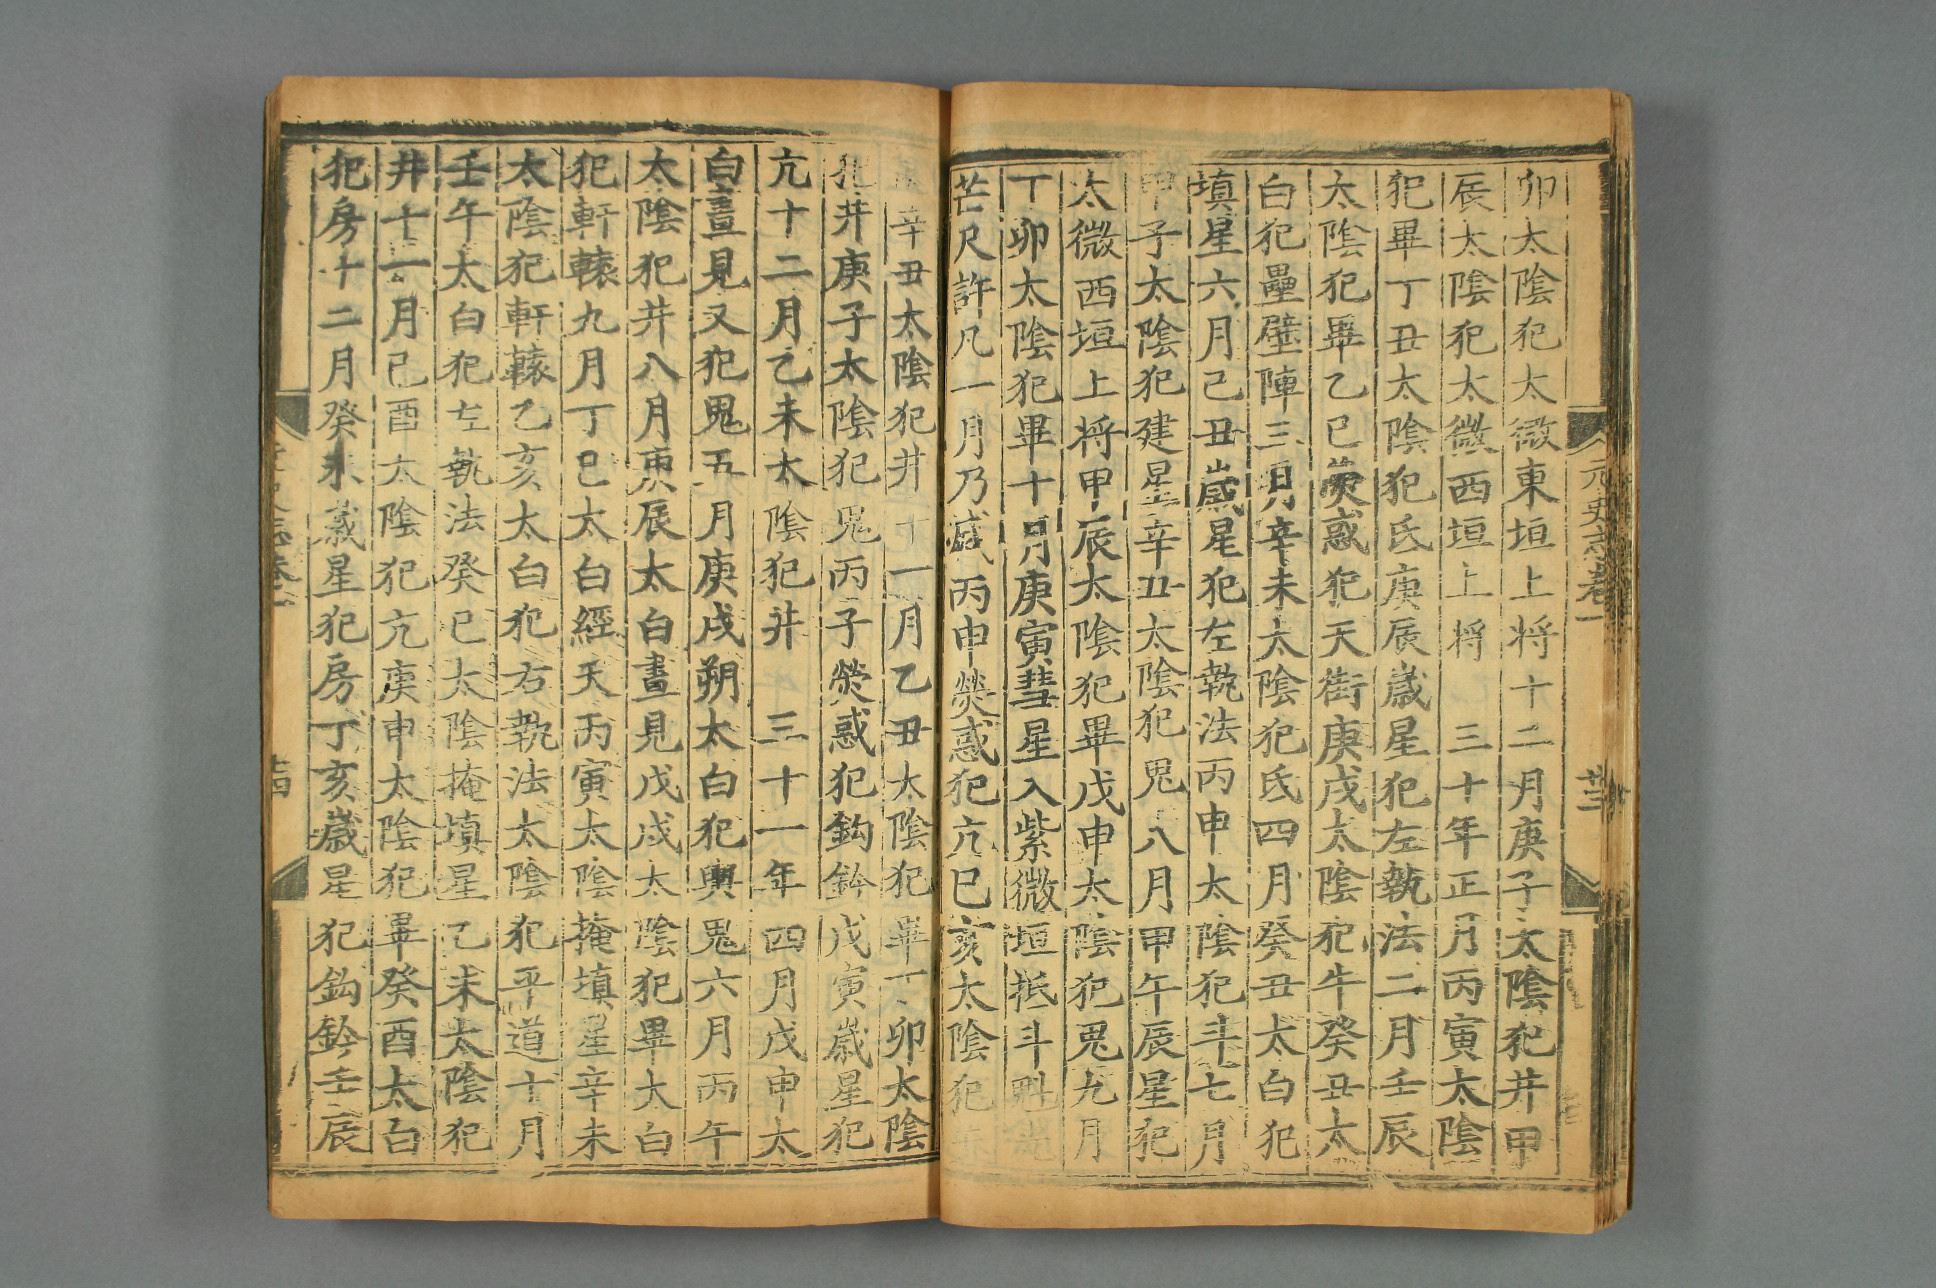 元史志卷一
廿三
卯太陰犯太微東垣上將十二月庚子太陰犯井甲
辰太陰犯太微西垣上將 三十年正月丙寅太陰
犯畢丁丑太陰犯氐庚辰歲星犯左執法二月壬辰
太陰犯畢乙巳熒惑犯天街庚戌太陰犯牛癸丑太
白犯壘壁陣三月辛未太陰犯氐四月癸丑太白犯
填星六月己丑歲星犯左執法丙申太陰犯斗七月
甲子太陰犯建星辛丑太陰犯鬼八月甲午辰星犯
太微西垣上將甲辰太陰犯畢戊申太陰犯鬼九月
丁卯太陰犯畢十月庚寅彗星入紫微垣抵斗魁光
芒尺許凡一月乃滅丙申熒惑犯亢巳亥太陰犯
辛丑太陰犯井十一月乙丑太陰犯畢丁卯太陰
犯井庚子太陰犯鬼丙子熒惑犯鈎鈐戊寅歲星犯
亢十二月乙未太陰犯井 三十一年四月戊申太
白晝見又犯鬼五月庚戌朔太白犯輿鬼六月丙午
太陰犯井八月庚辰太白晝見戊戌太陰犯畢太白
犯軒轅九月丁巳太白經天丙寅太陰掩填星辛未
太陰犯軒轅乙亥太白犯右執法太陰犯平道十月
壬午太白犯左執法癸巳太陰掩填星乙未太陰犯
井十一月己酉太陰犯亢庚申太陰犯畢癸酉太白
犯房十二月癸未歲星犯房丁亥歲星犯鈎鈐壬辰
志卷一
廿四